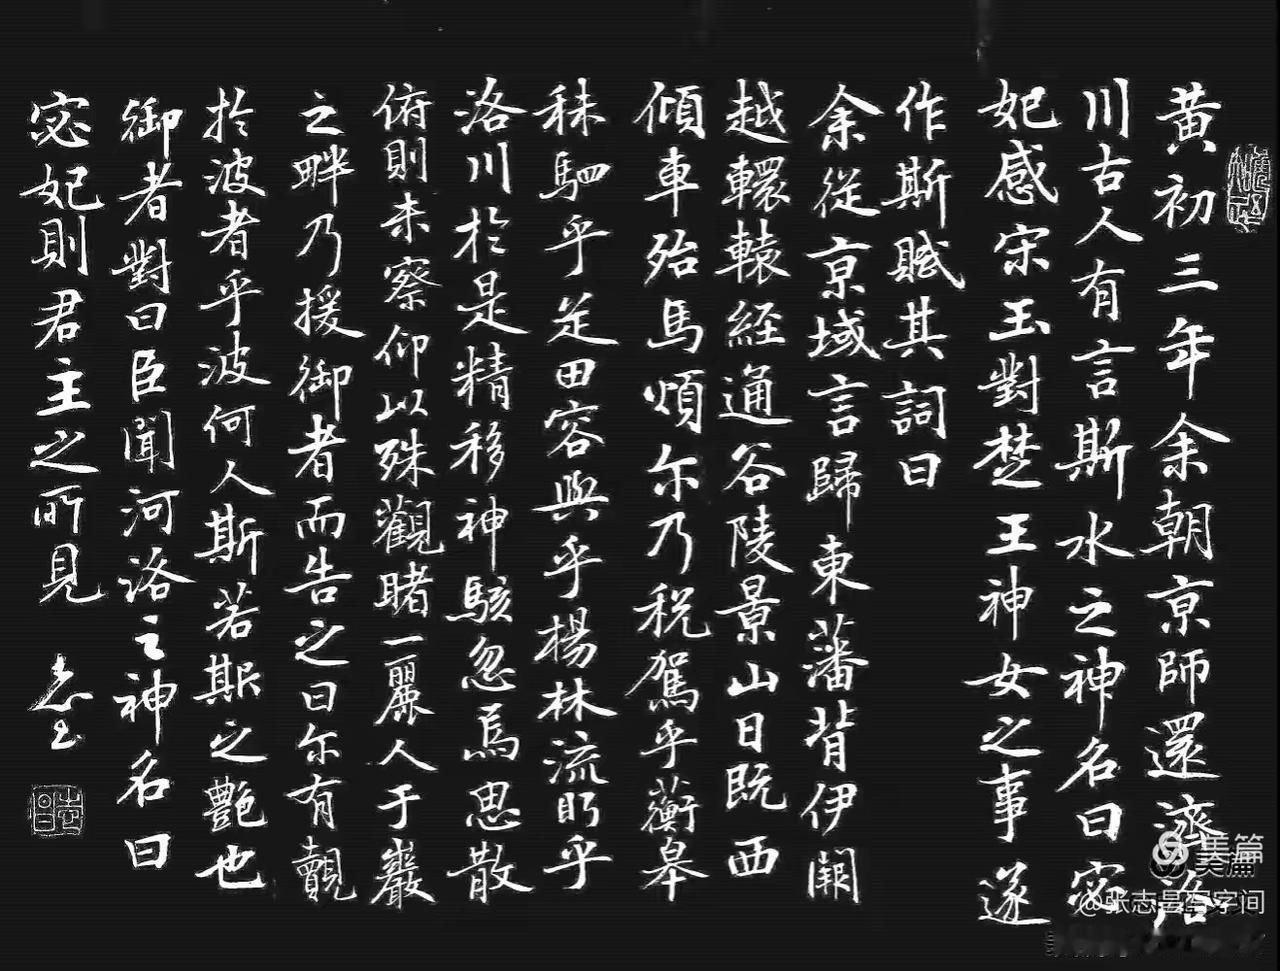 黄初三年余朝京師還濟洛
川古人有言斯水之神名曰宓
妃感宋玉對楚王神女之事遂
作斯賦其詞曰
余從京域言歸東藩背伊闕
越轘轅経通谷陵景山日既西
傾車殆馬煩尓乃税駕乎蘅皋
秣駟乎芝田容與乎楊林流眄乎
洛川於是精移神駭忽焉思散
俯則未察仰以殊觀睹一麗人于巖
之畔乃援御者而告之曰尓有覿
於波者乎波何人斯若斯之艷也
御者對曰臣聞河洛之神名曰
宓妃則君主之所見
美篇
@张志昌写字间